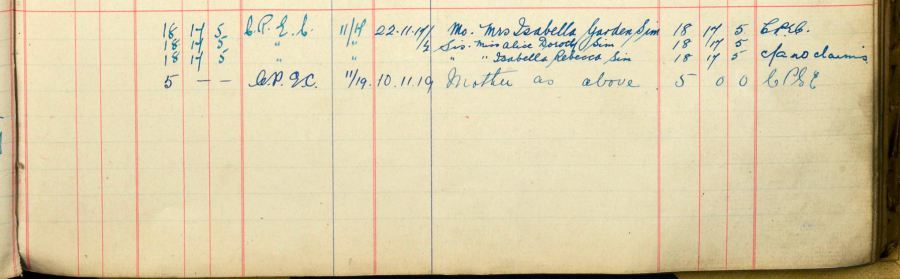 18 17 5 C.P.E.C. 11/17 22.11.17 Mo. Mrs Isabella Garden Sim 18 17 5
18 17 5 " " Sis. Miss Alice Dorothy Sim 18 17 5
18 17 5 " " " " Isabella Rebecca Sim 18 17 5 c/a no claims
5 — — 11/19 10.11.19 Mother as above 5 0 0